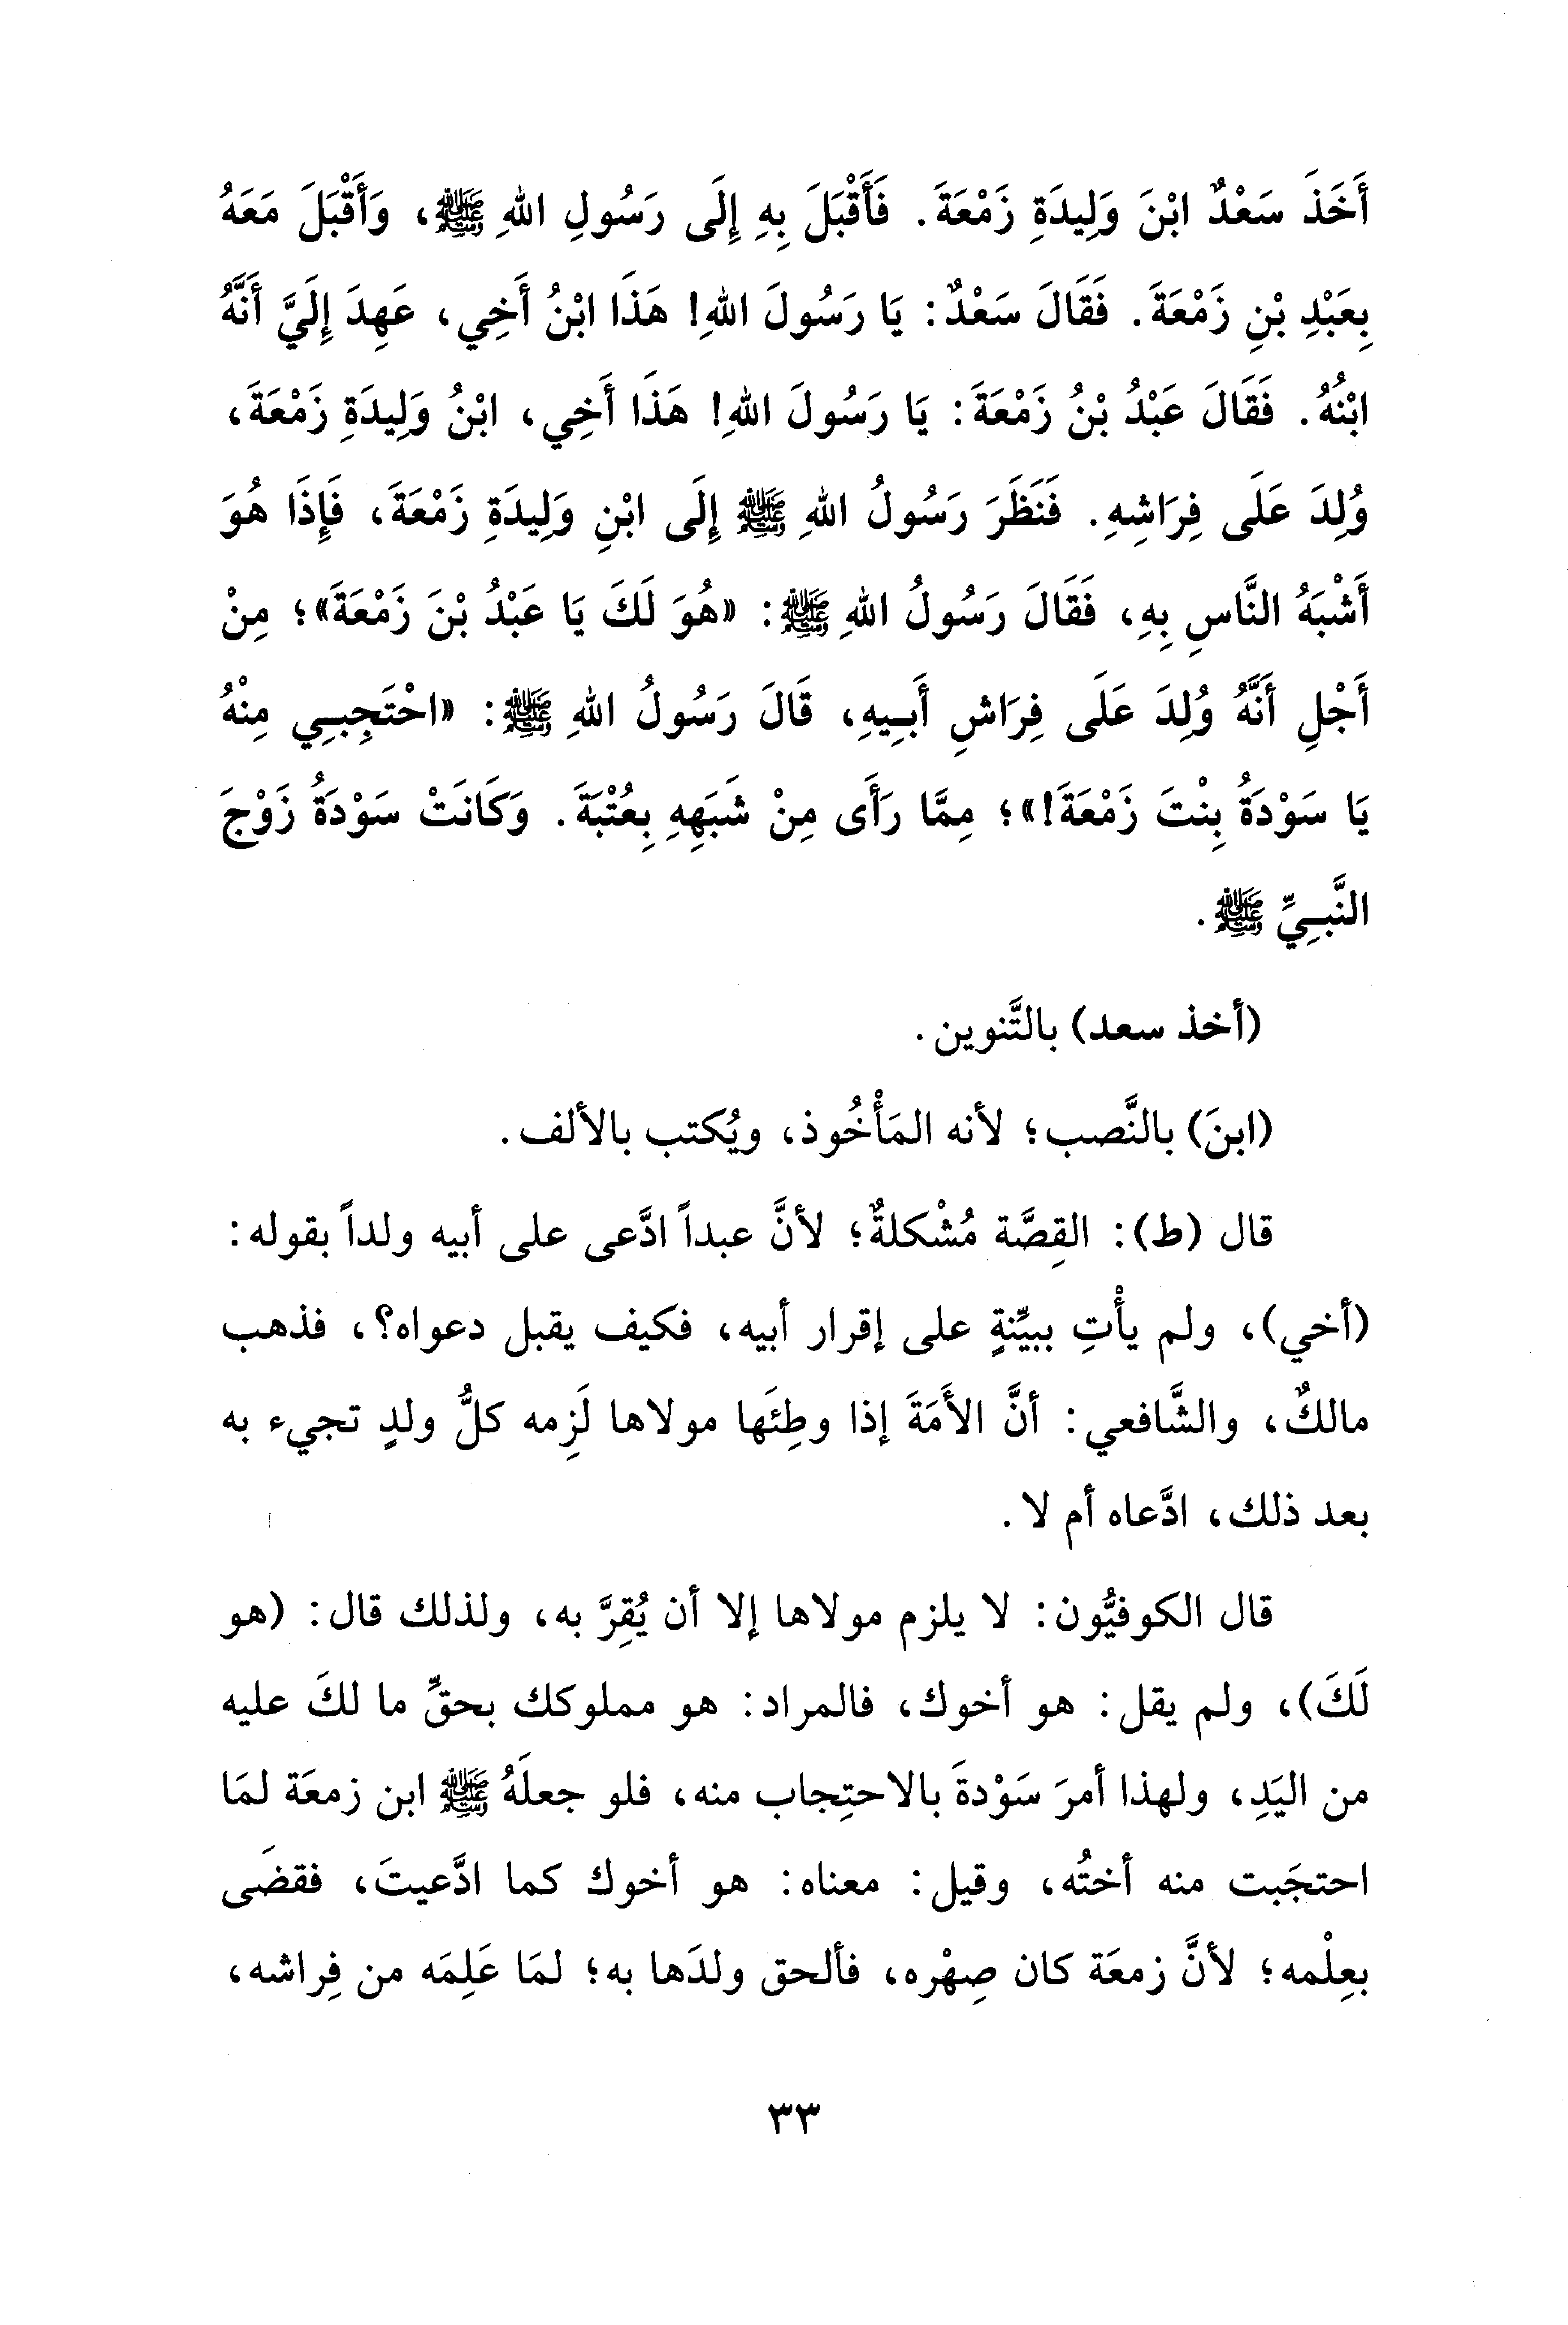 أَخَذَ سَعْدٌ ابْنَ وَلِيدَةِ زَمْعَةَ. فَأَقْبَلَ بِهِ إِلَى رَسُولِ اللهِ ﷺ، وَأَقْبَلَ مَعَهُ
بِعَبْدِ بْنِ زَمْعَةَ. فَقَالَ سَعْدٌ: يَا رَسُولَ اللهِ! هَذَا ابْنُ أَخِي، عَهِدَ إِلَيَّ أَنَّهُ
ابْنُهُ. فَقَالَ عَبْدُ بْنُ زَمْعَةَ: يَا رَسُولَ اللهِ! هَذَا أَخِي، ابْنُ وَلِيدَةِ زَمْعَةَ،
وُلِدَ عَلَى فِرَاشِهِ. فَنَظَرَ رَسُولُ اللهِ ﷺ إِلَى ابْنِ وَلِيدَةِ زَمْعَةَ، فَإِذَا هُوَ
أَشْبَهُ النَّاسِ بِهِ، فَقَالَ رَسُولُ اللهِ ﷺ: «هُوَ لَكَ يَا عَبْدُ بْنَ زَمْعَةَ»؛ مِنْ
أَجْلِ أَنَّهُ وُلِدَ عَلَى فِرَاشِ أَبِيهِ، قَالَ رَسُولُ اللهِ ﷺ: «احْتَجِبِي مِنْهُ
يَا سَوْدَةُ بِنْتَ زَمْعَةَ!»؛ مِمَّا رَأَى مِنْ شَبَهِهِ بِعُتْبَةَ. وَكَانَتْ سَوْدَةُ زَوْجَ
النَّبِيِّ ﷺ.
(أخذ سعد) بالتَّنوين.
(ابنَ) بالنَّصب؛ لأنه المَأْخُوذ، ويُكتب بالألف.
قال (ط): القِصَّة مُشْكلةٌ؛ لأنَّ عبداً ادَّعى على أبيه ولداً بقوله:
(أخي)، ولم يأْتِ ببيِّنةٍ على إقرار أبيه، فكيف يقبل دعواه؟، فذهب
مالكٌ، والشَّافعي: أنَّ الأَمَةَ إذا وطِئَها مولاها لَزِمه كلُّ ولدٍ تجيء به
بعد ذلك، ادَّعاه أم لا.
قال الكوفيُّون: لا يلزم مولاها إلا أن يُقِرَّ به، ولذلك قال: (هو
لَكَ)، ولم يقل: هو أخوك، فالمراد: هو مملوكك بحقِّ ما لكَ عليه
من اليَدِ، ولهذا أمرَ سَوْدةَ بالاحتِجاب منه، فلو جعلَهُ ﷺ ابن زمعَة لمَا
احتجَبت منه أختُه، وقيل: معناه: هو أخوك كما ادَّعيتَ، فقضَى
بعِلْمه؛ لأنَّ زمعَة كان صِهْره، فألحق ولدَها به؛ لمَا عَلِمَه من فِراشه،
٣٣